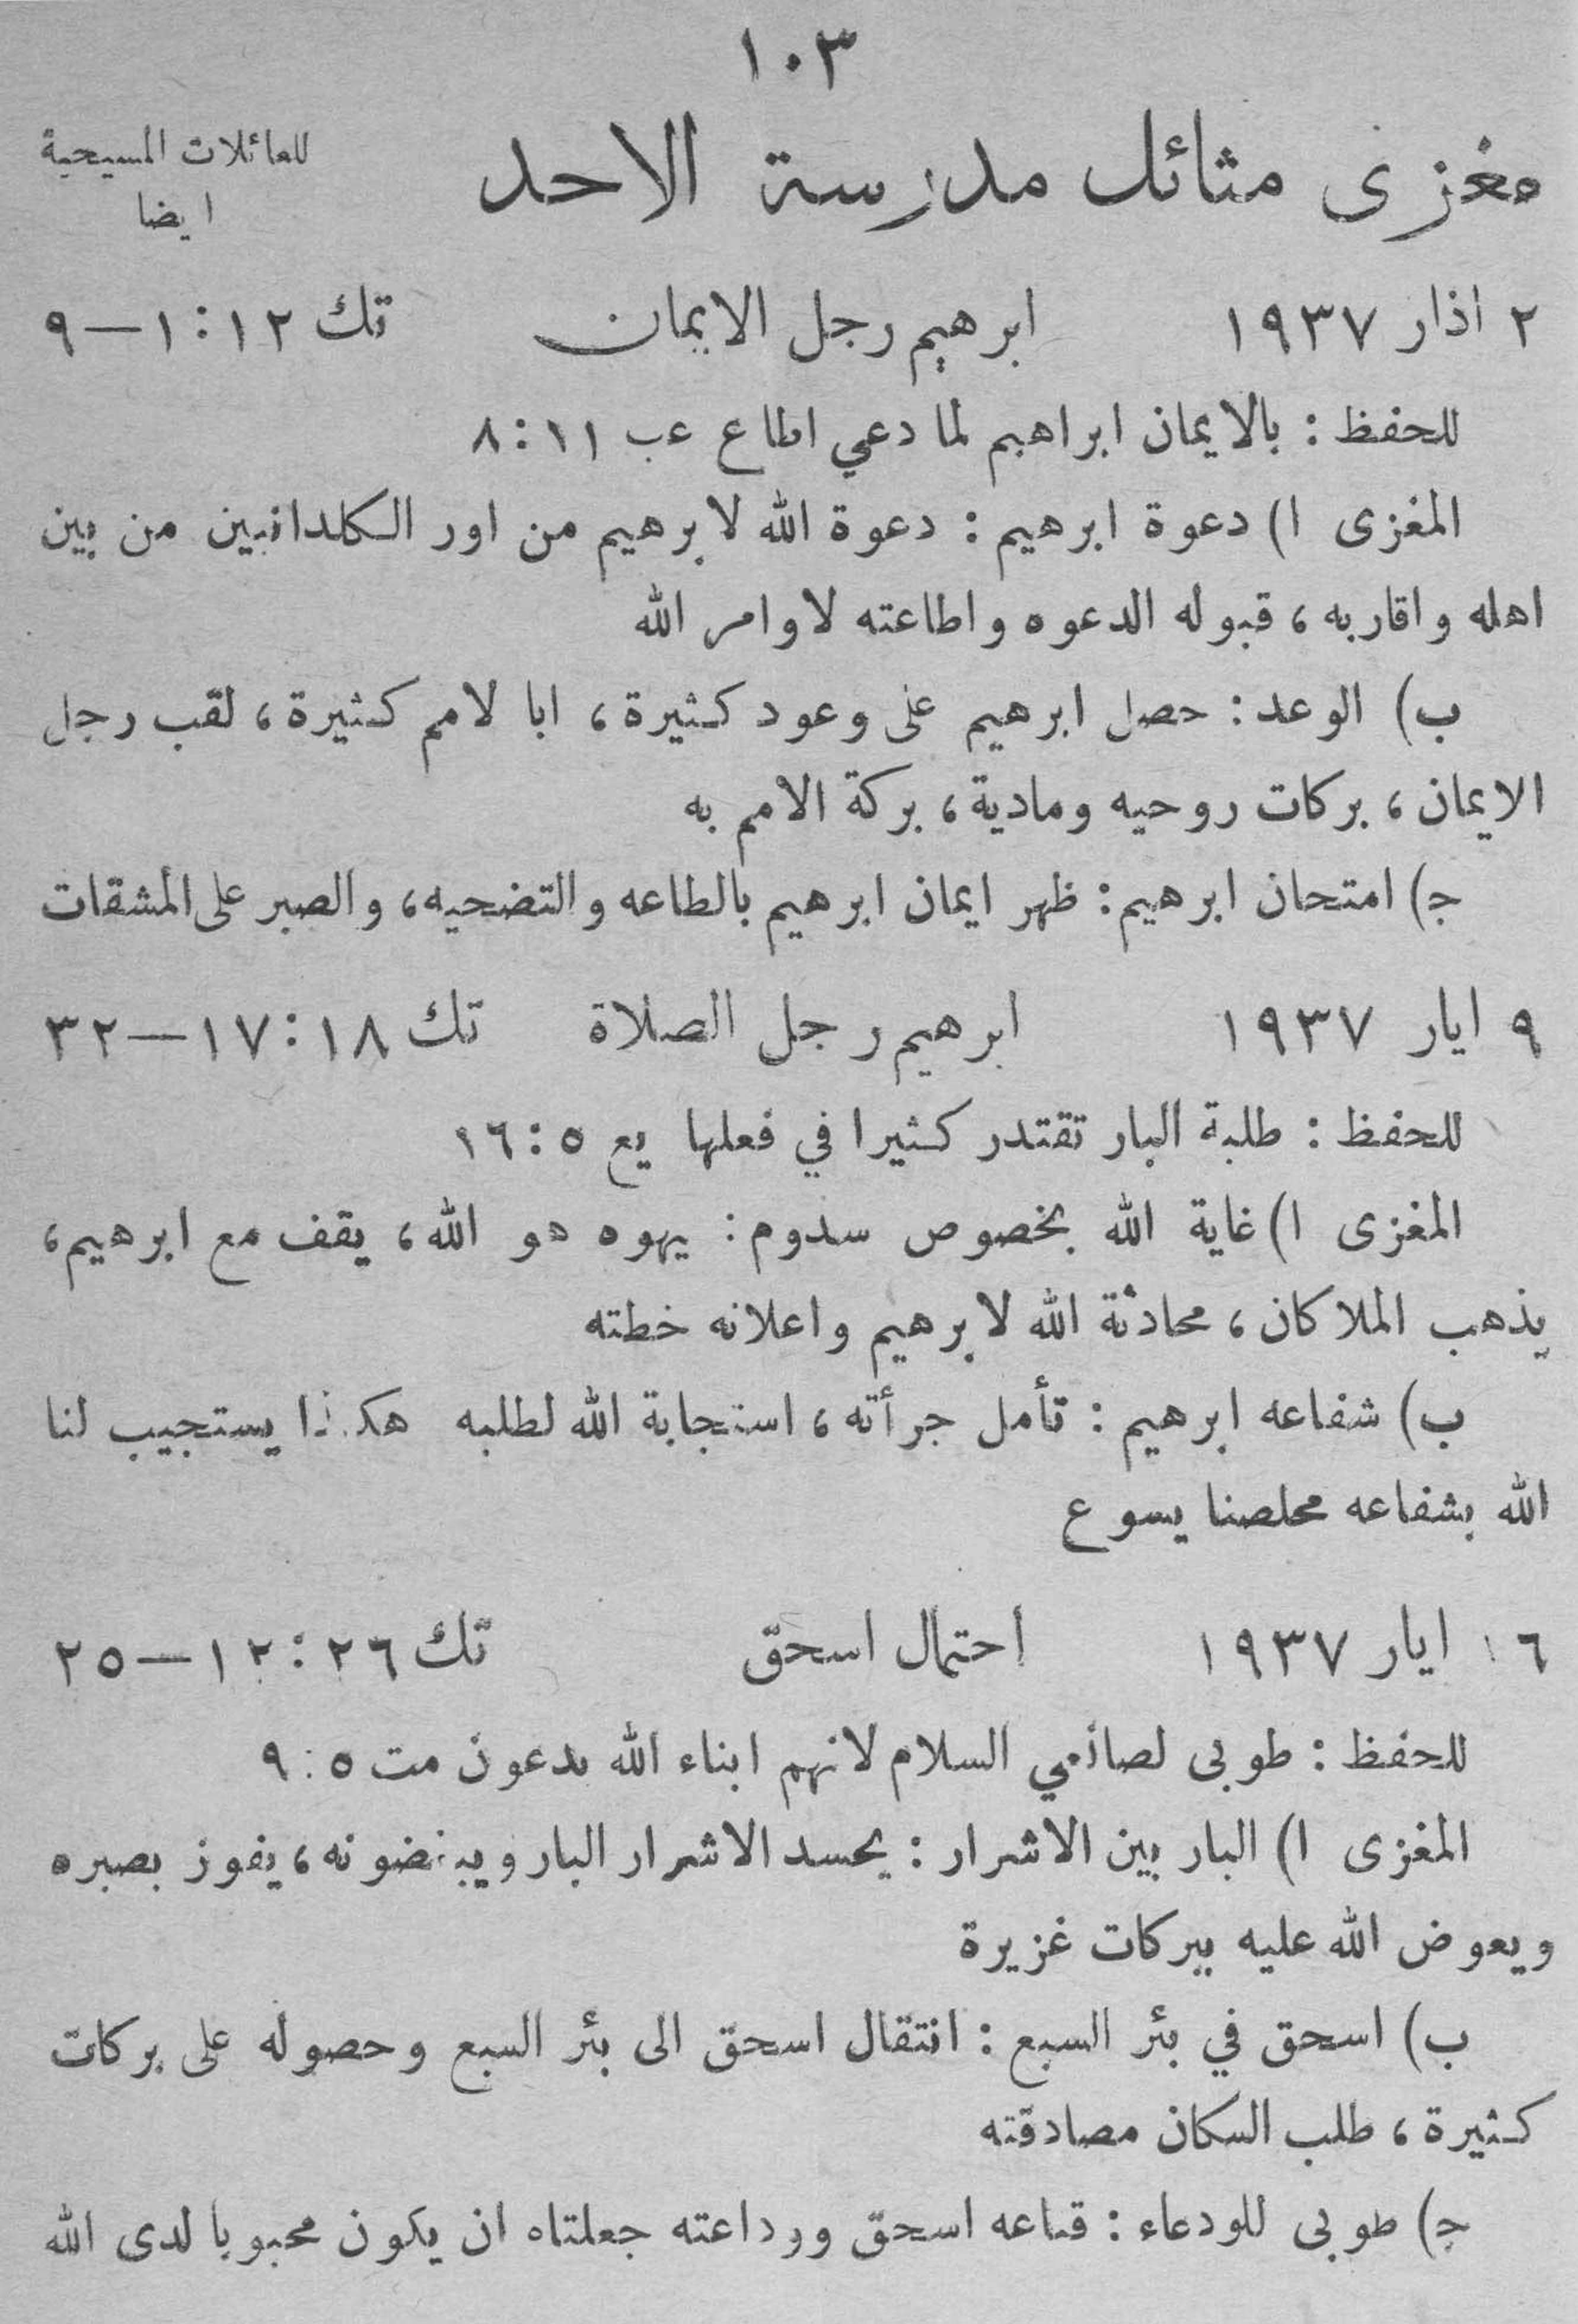 ١٠٣
مغزى مثائل مدرسة الاحد
للعائلات المسيحية
ايضا
٢ اذار ١٩٣٧ ابرهيم رجل الايمان تك ١٢:١—٩
للحفظ : بالايمان ابراهيم لما دعي اطاع عب ١١:٨
المغزى ا) دعوة ابرهيم : دعوة الله لابرهيم من اور الكلدانيين من بين
اهله واقاربه، قبوله الدعوه واطاعته لاوامر الله
ب) الوعد : حصل ابرهيم على وعود كثيرة، ابا لامم كثيرة، لقب رجل
الايمان، بركات روحيه ومادية، بركة الامم به
ج) امتحان ابرهيم : ظهر ايمان ابرهيم بالطاعه والتضحيه، والصبر على المشقات
٩ ايار ١٩٣٧ ابرهيم رجل الصلاة تك ١٨:١٧—٣٢
للحفظ : طلبة البار تقتدر كثيرا في فعلها يع ٥:١٦
المغزى ا) غاية الله بخصوص سدوم : يهوه هو الله، يقف مع ابرهيم،
يذهب الملاكان، محادثة الله لابرهيم واعلانه خطته
ب) شفاعه ابرهيم : تأمل جرأته، استجابة الله لطلبه هكذا يستجيب لنا
الله بشفاعه مخلصنا يسوع
١٦ ايار ١٩٣٧ احتمال اسحق تك ٢٦:١٢—٢٥
للحفظ : طوبى لصانعي السلام لانهم ابناء الله يدعون مت ٥:٩
المغزى ا) البار بين الاشرار : يحسد الاشرار البار ويبغضونه، يفوز بصبره
ويعوض الله عليه ببركات غزيرة
ب) اسحق في بئر السبع : انتقال اسحق الى بئر السبع وحصوله على بركات
كثيرة، طلب السكان مصادقته
ج) طوبى للودعاء : قناعه اسحق ووداعته جعلتاه ان يكون محبوبا لدى الله